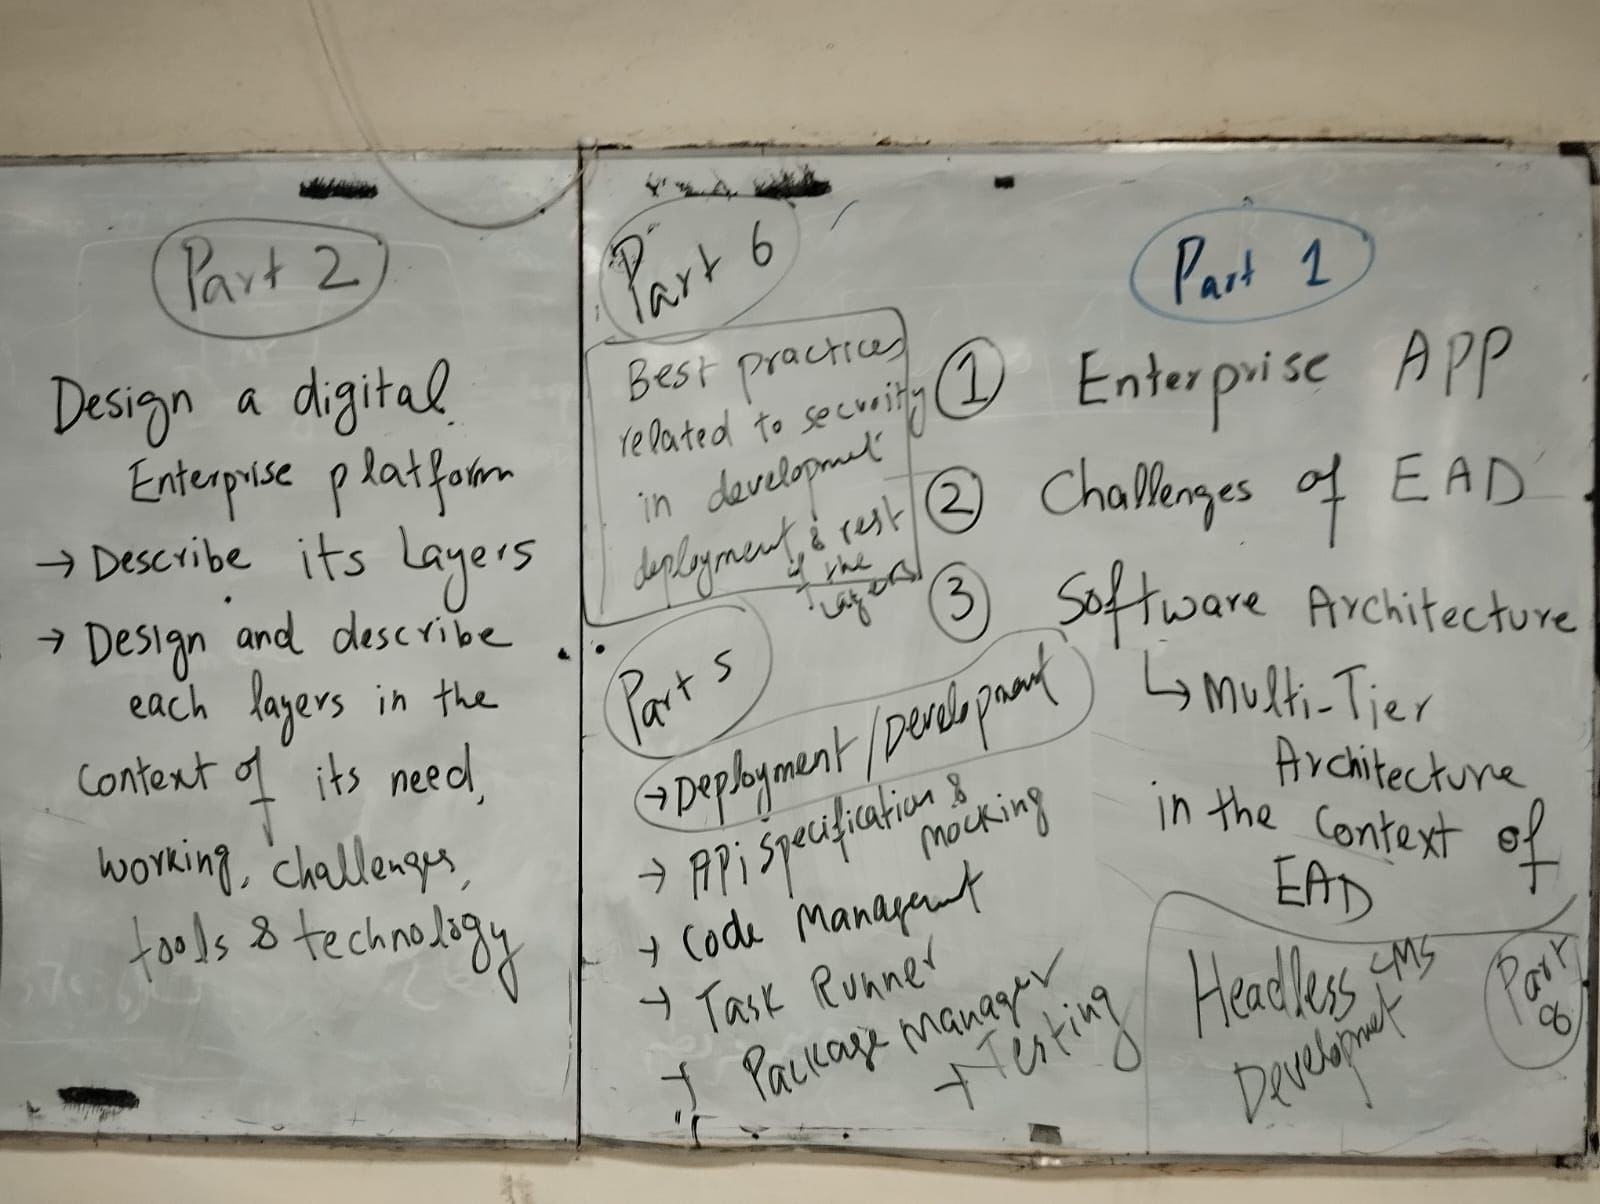 Part 2
Design a digital
Enterprise platform
→ Describe its Layers
→ Design and describe
each layers in the
context of its need,
working, challenges,
tools & technology
Part 6
Best practices
related to security
in development
deployment & rest
of the
layers
Part 5
→ Deployment/Development
→ APi specification &
mocking
→ Code Management
→ Task Runner
→ Package manager
→ Testing
Part 1
① Enterprise APP
② Challenges of EAD
③ Software Architecture
↳ Multi-Tier
Architecture
in the Context of
EAD
Headless CMS
Development
Part 8